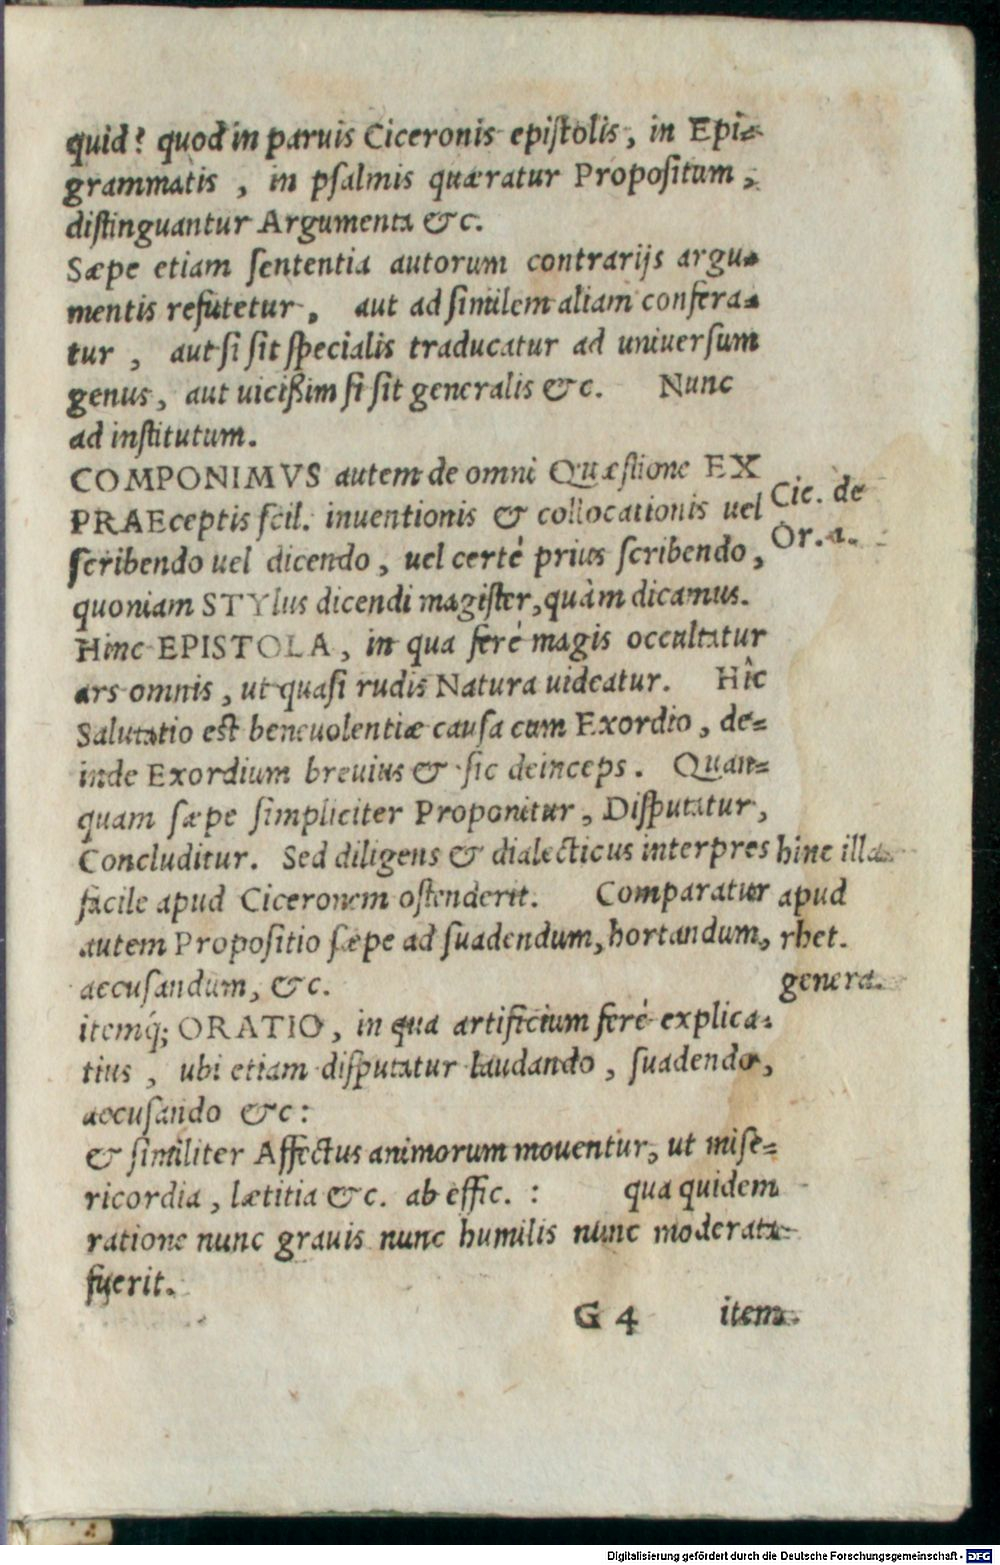 quid? quod in paruis Ciceronis epistolis, in Epi=
grammatis , in psalmis quæratur Propositum ,
distinguantur Argumenta &c.
Sæpe etiam sententia autorum contrarijs argu=
mentis refutetur , aut ad similem aliam confera=
tur , aut si sit specialis traducatur ad uniuersum
genus, aut uicißim si sit generalis &c. Nunc
ad institutum.
COMPONIMVS autem de omni Quæstione EX
PRAEceptis scil. inuentionis & collocationis uel
scribendo uel dicendo , uel certé prius scribendo ,
quoniam STYlus dicendi magister, quàm dicamus.
Cic. de
Or. 1.
Hinc EPISTOLA , in qua feré magis occultatur
ars omnis , ut quasi rudis Natura uideatur. Hîc
Salutatio est beneuolentiæ causa cum Exordio , de=
inde Exordium breuius & sic deinceps. Quan=
quam sæpe simpliciter Proponitur , Disputatur ,
Concluditur. Sed diligens & dialecticus interpres
facile apud Ciceronem ostenderit. Comparatur
autem Propositio sæpe ad suadendum, hortandum,
accusandum, &c.
hinc illa
apud
rhet.
genera.
itemq́; ORATIO , in qua artificium feré explica=
tius , ubi etiam disputatur laudando , suadendo,
accusando &c :
& similiter Affectus animorum mouentur, ut mise=
ricordia , lætitia &c. ab effic. : qua quidem
ratione nunc grauis nunc humilis nunc moderata
fuerit.
G 4 item
Digitalisierung gefördert durch die Deutsche Forschungsgemeinschaft - DFG